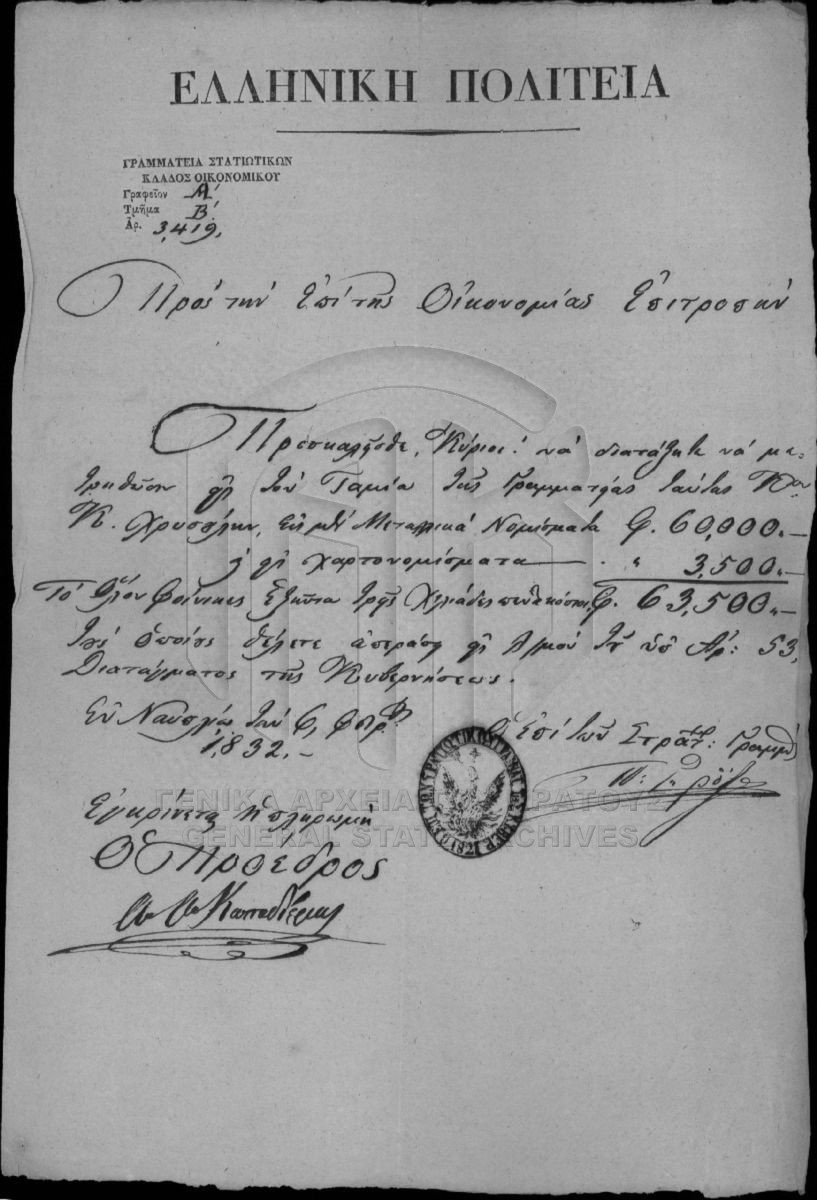 ΕΛΛΗΝΙΚΗ ΠΟΛΙΤΕΙΑ
ΓΡΑΜΜΑΤΕΙΑ ΣΤΑΤΙΩΤΙΚΩΝ
ΚΛΑΔΟΣ ΟΙΚΟΝΟΜΙΚΟΥ
Γραφεῖον Α΄.
Τμῆμα Β΄.
Ἀρ. 3,419,
Πρὸς τὴν ἐπὶ τῆς Οἰκονομίας Ἐπιτροπὴν
Προσκαλεῖσθε, Κύριοι! νὰ διατάξητε νὰ με-
τρηθῶσιν εἰς τὸν Ταμία τῆς Γραμματείας ταύτης
Κ. εἰς μὲ Μεταλλικὰ Νομίσματα φ. 60,000.-
εἰς χαρτονομίσματα " 3,500.-
Τὸ ὅλον φοίνικες ἑξῆντα τρεῖς χιλιάδες πεντακόσιοι φ. 63,500.-
τοὺς ὁποίους θέλετε ἀπεράσει εἰς τοῦ ὑπ' Ἀρ: 53,
Διατάγματος τῆς Κυβερνήσεως.
Ἐν Ναυπλίῳ τὴν 6,
1832.-
Ὁ ἐπὶ τῶν Στρατ: Γραμμ
Ἐγκρίνεται ἡ πληρωμὴ
Ὁ Πρόεδρος
Α. Α. Καποδίστριας
ΓΕΝΙΚΑ ΑΡΧΕΙΑ ΤΟΥ ΚΡΑΤΟΥΣ
GENERAL STATE ARCHIVES